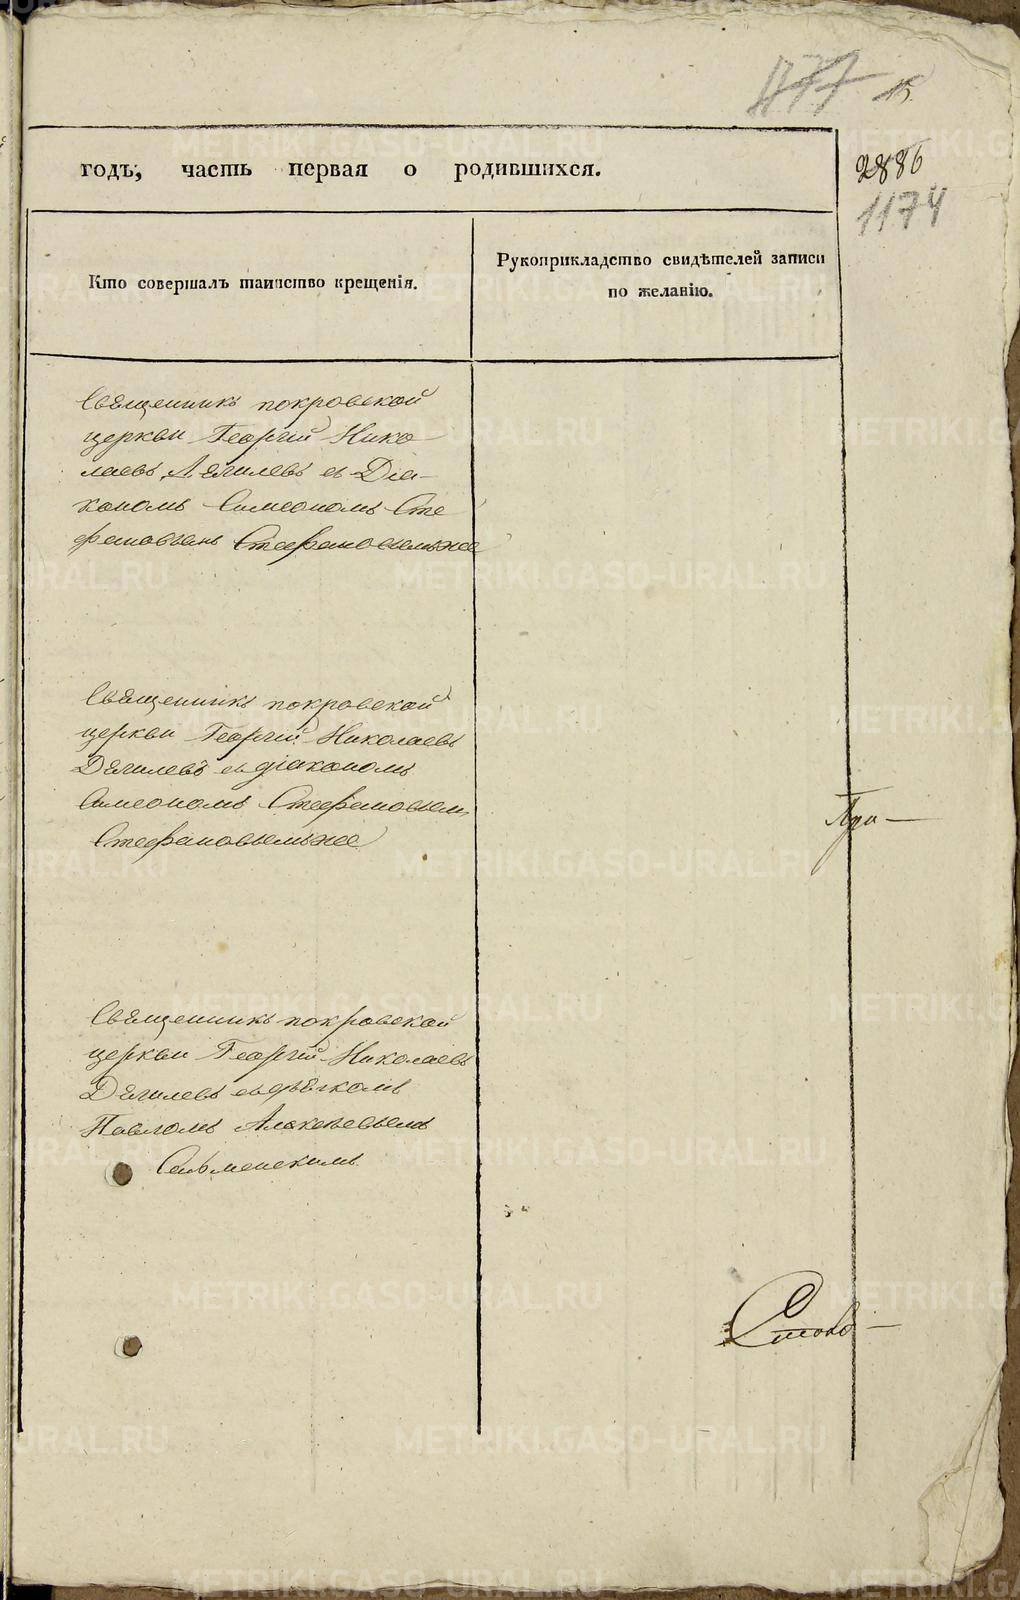 477 15.
годъ, часть первая о родившихся.
2886
1174
Кто совершалъ таинство крещенія.
Рукоприкладство свидѣтелей записи
по желанію.
Священникъ покровской
церкви Георгій Нико
лаевъ Дягилевъ съ Діа-
кономъ Симеономъ Сте
фановымъ Стефановымъ же
Священникъ покровской
церкви Георгій Николаевъ
Дягилевъ съ діакономъ
Симеономъ Стефановым
Стефановымъ же
При-
Священникъ покровской
церкви Георгій Николаевъ
Дягилевъ съ дьячкомъ
Павломъ Алексѣевымъ
METRIKI.GASO-URAL.RU